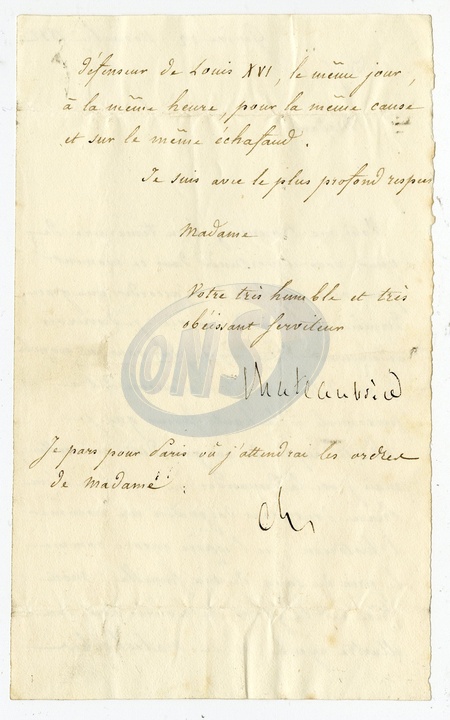 défenseur de Louis XVI, le même jour,
à la même heure, pour la même cause
et sur le même échafaud.
Je suis avec le plus profond respect
Madame
Votre très humble et très
obéissant serviteur
ONS
Chateaubriand
Je pars pour Paris où j'attendrai les ordres
de Madame.
Ch